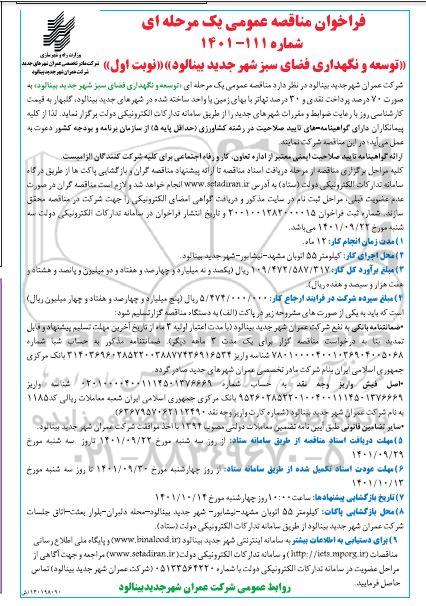 فراخوان مناقصه عمومی یک مرحله ای
شماره ۱۱۱-۱۴۰۱
«توسعه و نگهداری فضای سبز شهر جدید بینالود» «(نوبت اول)»
وزارت راه و شهرسازی
شرکت مادر تخصصی عمران شهرهای جدید
شرکت عمران شهر جدید بینالود
شرکت عمران شهرجدید بینالود در نظر دارد مناقصه عمومی یک مرحله ای «توسعه و نگهداری فضای سبز شهر جدید بینالود» به
صورت ۷۰ درصد پرداخت نقدی و ۳۰ درصد تهاتر با بهای زمین یا واحد ساخته شده در شهرهای جدید بینالود، گلبهار به قیمت
کارشناسی روز با رعایت ضوابط و مقررات شهر جدید را از طریق سامانه تدارکات الکترونیکی دولت برگزار نماید. لذا از کلیه
پیمانکاران دارای گواهینامه‌های تایید صلاحیت در رشته کشاورزی (حداقل پایه ۵) از سازمان برنامه و بودجه کشور دعوت به
عمل می‌آید؛ در این مناقصه شرکت نمایند.
ارائه گواهینامه تایید صلاحیت ایمنی معتبر از اداره تعاون، کار و رفاه اجتماعی برای کلیه شرکت کنندگان الزامیست.
کلیه مراحل برگزاری مناقصه از مرحله دریافت اسناد مناقصه تا ارائه پیشنهاد مناقصه گران و بازگشایی پاکت ها از طریق درگاه
سامانه تدارکات الکترونیکی دولت (ستاد) به آدرس www.setadiran.ir انجام خواهد شد و لازم است مناقصه گران در صورت
عدم عضویت قبلی، مراحل ثبت نام در سایت مذکور و دریافت گواهی امضای الکترونیکی را جهت شرکت در مناقصه محقق
سازند. شماره ثبت فراخوان ۲۰۰۱۰۰۱۲۸۲۰۰۰۰۱۵ و تاریخ انتشار فراخوان در سامانه تدارکات الکترونیکی دولت سه
شنبه مورخ ۱۴۰۱/۰۹/۲۲ می‌باشد.
۱) مدت زمان انجام کار: ۱۲ ماه.
۲) محل اجرای کار: کیلومتر ۵۵ اتوبان مشهد-نیشابور-شهر جدید بینالود.
۳) مبلغ برآورد کل کار: ۱۰۹/۴۷۲/۵۸۷/۳۱۷ ریال (یکصد و نه میلیارد و چهارصد و هفتاد و دو میلیون و پانصد و هشتاد و
هفت هزار و سیصد و هفده ریال).
۴) مبلغ سپرده شرکت در فرایند ارجاع کار: ۵/۴۷۴/۰۰۰/۰۰۰ ریال (پنج میلیارد و چهارصد و هفتاد و چهار میلیون ریال)
است که باید به یکی از صورت های مشروحه زیر در پاکت (الف) به دستگاه مناقصه گزار تسلیم شود:
•ضمانتنامه بانکی به نفع شرکت عمران شهر جدید بینالود (با مدت اعتبار اولیه ۳ ماه از تاریخ آخرین مهلت تسلیم پیشنهاد و قابل
تمدید بنا به درخواست مناقصه گزار برای یک مدت ۳ ماهه دیگر). ضمانتنامه مذکور به حساب شبا شماره
شناسه واریز بانک مرکزی
جمهوری اسلامی ایران بنام شرکت مادر تخصصی عمران شهر های جدید صادر گردد.
•اصل فیش واریز وجه نقد به حساب شماره شناسه واریز
بانک مرکزی جمهوری اسلامی ایران شعبه معاملات ریالی کد۱۱۸۵
به نام شرکت عمران شهر جدید بینالود (شماره کارت واریز وجه نقد ).
•سایر تضامین قانونی طبق آیین نامه تضمین معاملات دولتی مصوب ۱۳۹۴ با اخذ موافقت شرکت عمران شهر جدید بینالود.
۵) مهلت دریافت اسناد مناقصه از طریق سامانه ستاد: از روز سه شنبه مورخ ۱۴۰۱/۰۹/۲۲ تا روز سه شنبه مورخ
۱۴۰۱/۰۹/۲۹
۶) مهلت عودت اسناد تکمیل شده از طریق سامانه ستاد: از روز چهارشنبه مورخ ۱۴۰۱/۰۹/۳۰ تا روز سه شنبه مورخ
۱۴۰۱/۱۰/۱۳
۷) تاریخ بازگشایی پیشنهادها: ساعت۱۰:۰۰ روز چهارشنبه مورخ ۱۴۰۱/۱۰/۱۴
۸) محل بازگشایی پاکات: کیلومتر ۵۵ اتوبان مشهد-نیشابور- شهر جدید بینالود-محله دلبران-بلوار بعثت-اتاق جلسات
شرکت عمران شهر جدید بینالود از طریق سامانه تدارکات الکترونیکی دولت (ستاد).
۹) برای دستیابی به اطلاعات بیشتر به سامانه اینترنتی شهر جدید بینالود (www.binalood.ir) و پایگاه ملی اطلاع رسانی
مناقصات (http://iets.mporg.ir) و سامانه تدارکات الکترونیکی دولت (www.setadiran.ir) مراجعه و جهت آگاهی از
مراحل عضویت در سامانه تدارکات الکترونیکی دولت با شماره ۰۵۱۳۳۵۶۴۲۲۰ (شرکت عمران شهر جدید بینالود) تماس
حاصل فرمایید.
روابط عمومی شرکت عمران شهرجدیدبینالود
۱۴۰۱۹۸۰۹۰/ش
۰۲۱-۸۸۳۴۹۶۷۰-۵